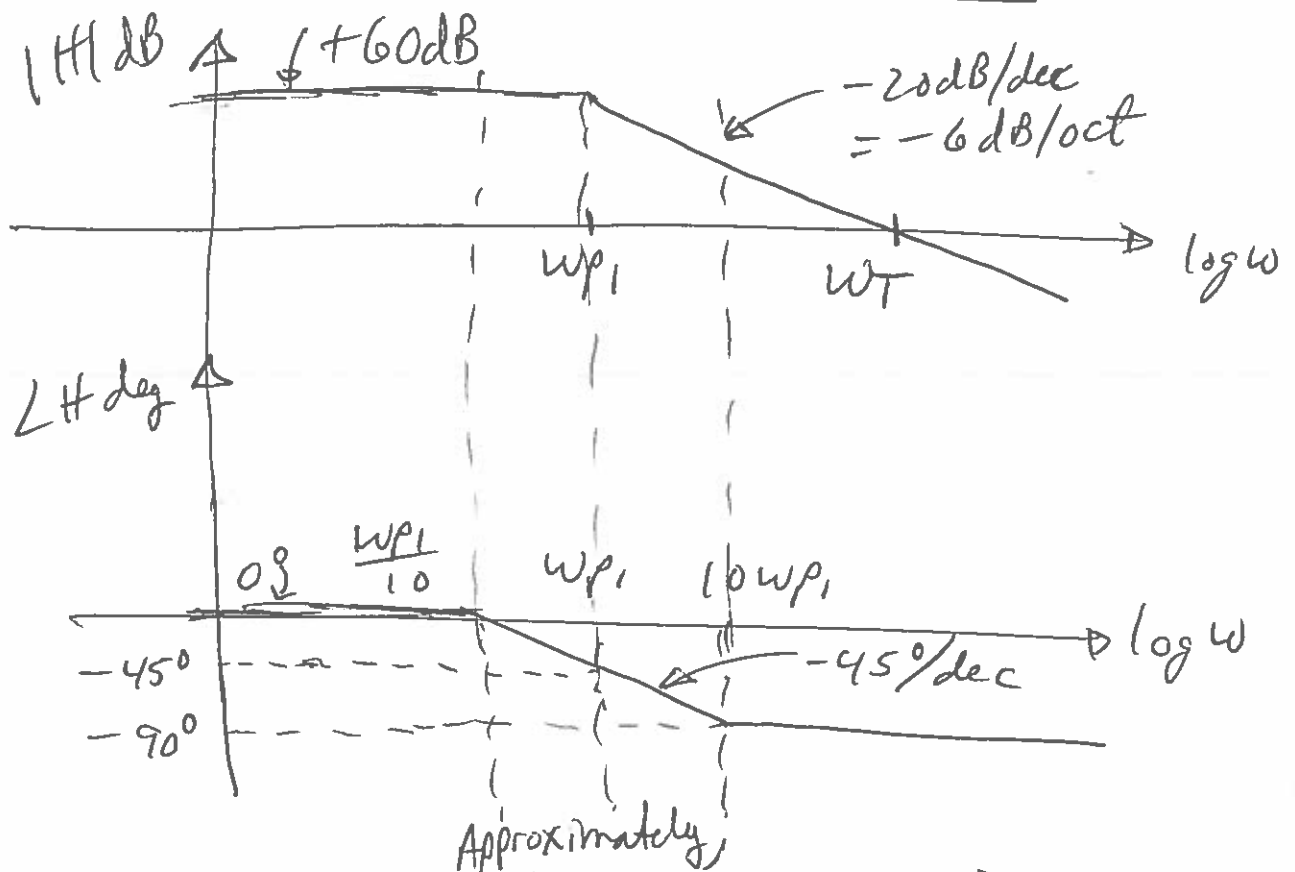 |H| dB
+60dB
-20dB/dec
= -6dB/oct
ωp1
ωT
log ω
∠H deg
0°
ωp1/10
ωp1
10ωp1
log ω
-45°
-45°/dec
-90°
Approximately,